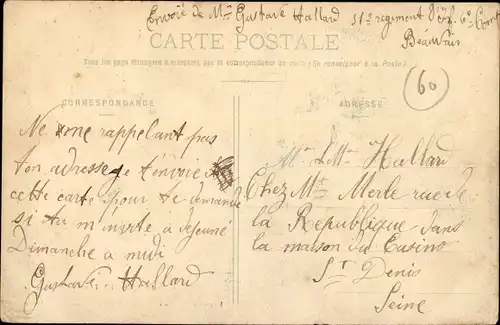 Envoie de Mr Gustave Hallard 51e regiment d'inf. 6e Comp
Beauvais
CARTE POSTALE
Tous les pays étrangers n'acceptent pas la correspondance au recto (Se renseigner à la Poste)
60
CORRESPONDANCE
ADRESSE
Ne me rappelant pas
ton adresse je t'envoie
cette carte pour te demander
si tu m'invite à dejeuné
Dimanche à midi
Gustave Hallard
Mr & Mme Hallard
Chez Mme Merle rue de
la République dans
la maison du Casino
St Denis
Seine